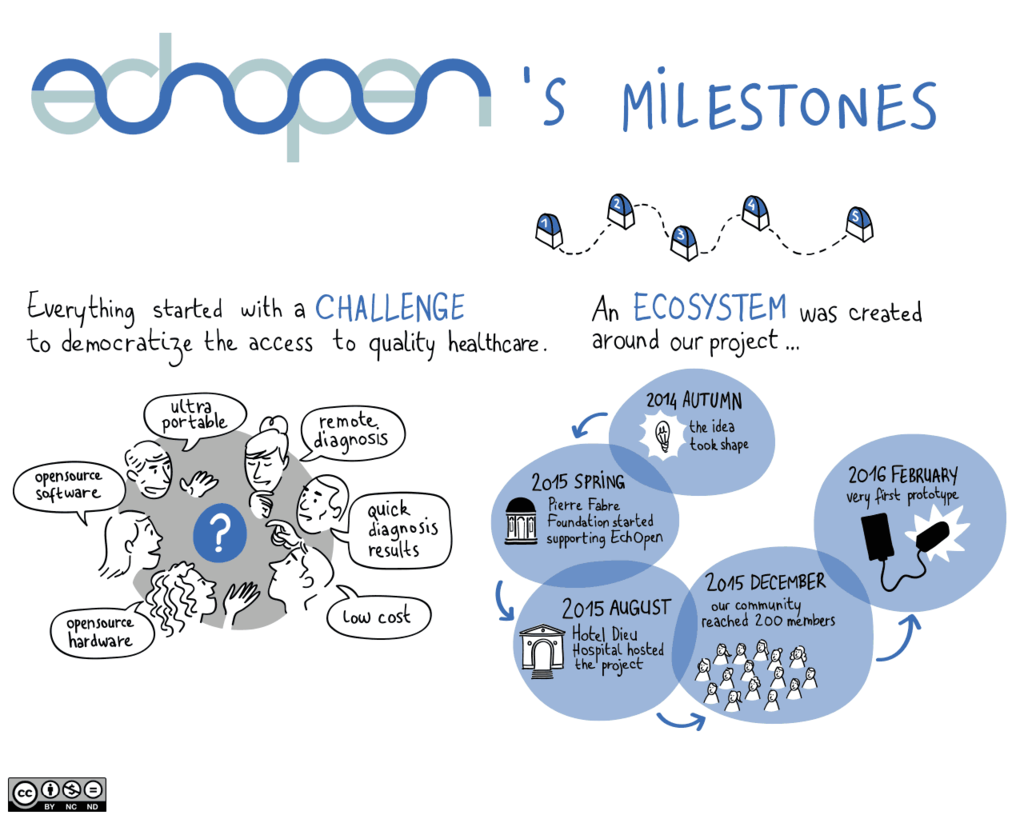 echopen 's MiLESTONES
1 2 3 4 5
Everything started with a CHALLENGE
to democratize the access to quality healthcare.
ultra
portable
remote
diagnosis
opensource
software
quick
diagnosis
results
?
opensource
hardware
low cost
An ECOSYSTEM was created
around our project ...
2014 AUTUMN
the idea
took shape
2015 SPRING
Pierre Fabre
Foundation started
supporting EchOpen
2015 AUGUST
Hotel Dieu
Hospital hosted
the project
2015 DECEMBER
our community
reached 200 members
2016 FEBRUARY
very first prototype
cc
BY NC ND